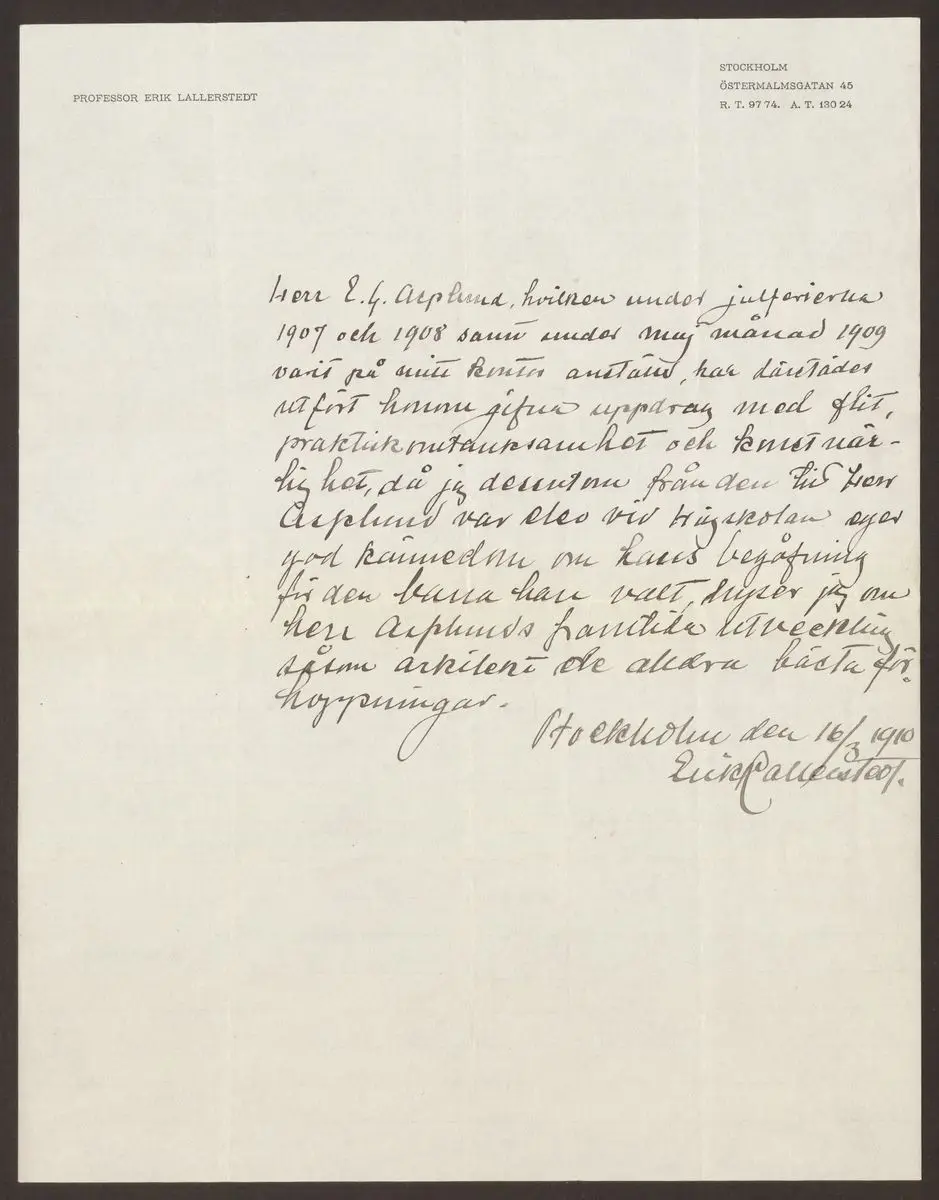 PROFESSOR ERIK LALLERSTEDT
STOCKHOLM
ÖSTERMALMSGATAN 45
R. T. 97 74. A. T. 130 24
Herr E. G. Asplund, hvilken under julferierna
1907 och 1908 samt under maj månad 1909
varit på mitt kontor anställd, har därstädes
utfört honom gifna uppdrag med flit,
praktisk omtänksamhet och konstnär-
lighet, då jag dessutom från den tid Herr
Asplund var elev vid Högskolan eger
god kännedom om hans begåfning
för den bana han valt, hyser jag om
herr Asplunds framtida utveckling
såsom arkitekt de allra bästa för-
hoppningar.
Stockholm den 16/3 1910
Erik Lallerstedt.